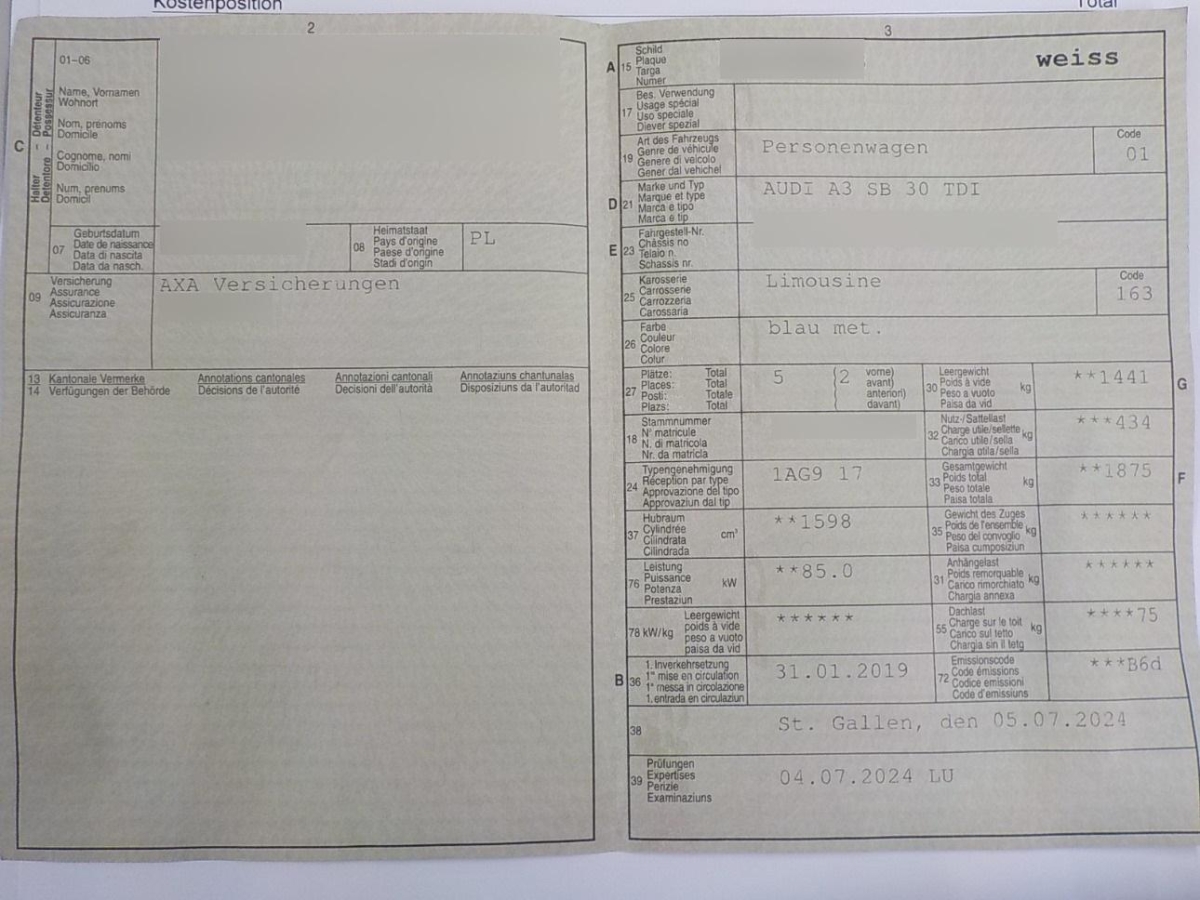 Kostenposition
Total
2
01-06
C
Halter - Détenteur
Detentore - Possessur
Name, Vornamen
Wohnort
Nom, prénoms
Domicile
Cognome, nomi
Domicilio
Num, prenums
Domicil
07
Geburtsdatum
Date de naissance
Data di nascita
Data da nasch.
08
Heimatstaat
Pays d'origine
Paese d'origine
Stadi d'origin
PL
09
Versicherung
Assurance
Assicurazione
Assicuranza
AXA Versicherungen
13 Kantonale Vermerke Annotations cantonales Annotazioni cantonali Annotaziuns chantunalas
14 Verfügungen der Behörde Décisions de l'autorité Decisioni dell'autorità Disposiziuns da l'autoritad
3
A 15
Schild
Plaque
Targa
Numer
weiss
17
Bes. Verwendung
Usage spécial
Uso speciale
Diever spezial
19
Art des Fahrzeugs
Genre de véhicule
Genere di veicolo
Gener dal vehichel
Personenwagen
Code
01
D 21
Marke und Typ
Marque et type
Marca e tipo
Marca e tip
AUDI A3 SB 30 TDI
E 23
Fahrgestell-Nr.
Châssis no
Telaio n.
Schassis nr.
25
Karosserie
Carrosserie
Carrozzeria
Carossaria
Limousine
Code
163
26
Farbe
Couleur
Colore
Colur
blau met.
27
Plätze: Total
Places: Total
Posti: Totale
Plazs: Total
5
(2
vorne)
avant)
anteriori)
davant)
30
Leergewicht
Poids à vide
Peso a vuoto
Paisa da vid
kg
**1441
G
18
Stammnummer
N° matricule
N. di matricola
Nr. da matricla
32
Nutz-/Sattellast
Charge utile/sellette
Carico utile/sella
Chargia utila/sella
kg
***434
24
Typengenehmigung
Réception par type
Approvazione del tipo
Approvaziun dal tip
1AG9 17
33
Gesamtgewicht
Poids total
Peso totale
Paisa totala
kg
**1875
F
37
Hubraum
Cylindrée
Cilindrata
Cilindrada
cm³
**1598
35
Gewicht des Zuges
Poids de l'ensemble
Peso del convoglio
Paisa cumposiziun
kg
******
76
Leistung
Puissance
Potenza
Prestaziun
kW
**85.0
31
Anhängelast
Poids remorquable
Carico rimorchiato
Chargia annexa
kg
******
78 kW/kg
Leergewicht
poids à vide
peso a vuoto
paisa da vid
******
55
Dachlast
Charge sur le toit
Carico sul tetto
Chargia sin il tetg
kg
****75
B 36
1. Inverkehrsetzung
1re mise en circulation
1a messa in circolazione
1. entrada en circulaziun
31.01.2019
72
Emissionscode
Code émissions
Codice emissioni
Code d'emissiuns
***B6d
38
St. Gallen, den 05.07.2024
39
Prüfungen
Expertises
Perizie
Examinaziuns
04.07.2024 LU